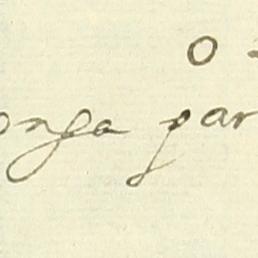 O
onga par